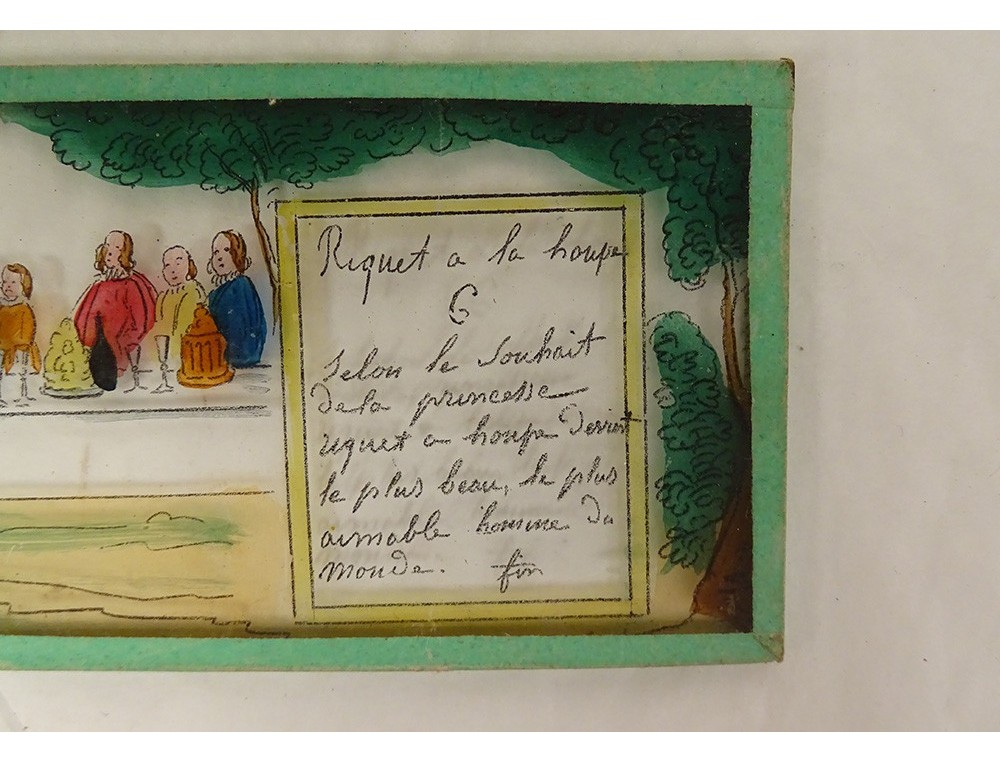 Riquet a la houpe
6
Selon le souhait
de la princesse
riquet a houpe devient
le plus beau, le plus
aimable homme du
monde. fin